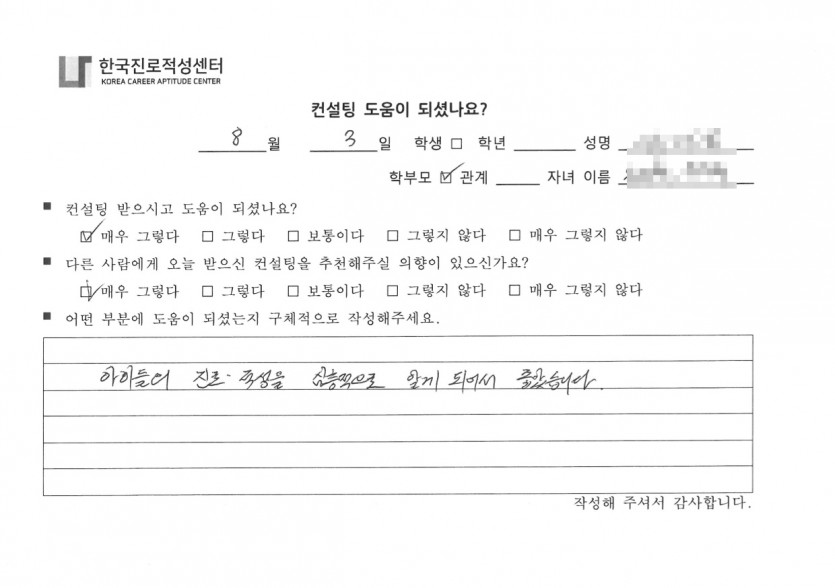 한국진로적성센터
KOREA CAREER APTITUDE CENTER
컨설팅 도움이 되셨나요?
8 월 3 일 학생 □ 학년 성명
학부모 ☑ 관계 자녀 이름
■ 컨설팅 받으시고 도움이 되셨나요?
☑ 매우 그렇다 □ 그렇다 □ 보통이다 □ 그렇지 않다 □ 매우 그렇지 않다
■ 다른 사람에게 오늘 받으신 컨설팅을 추천해주실 의향이 있으신가요?
☑ 매우 그렇다 □ 그렇다 □ 보통이다 □ 그렇지 않다 □ 매우 그렇지 않다
■ 어떤 부분에 도움이 되셨는지 구체적으로 작성해주세요.
아이들의 진로· 특성을 심층적으로 알게 되어서 좋았습니다.
작성해 주셔서 감사합니다.